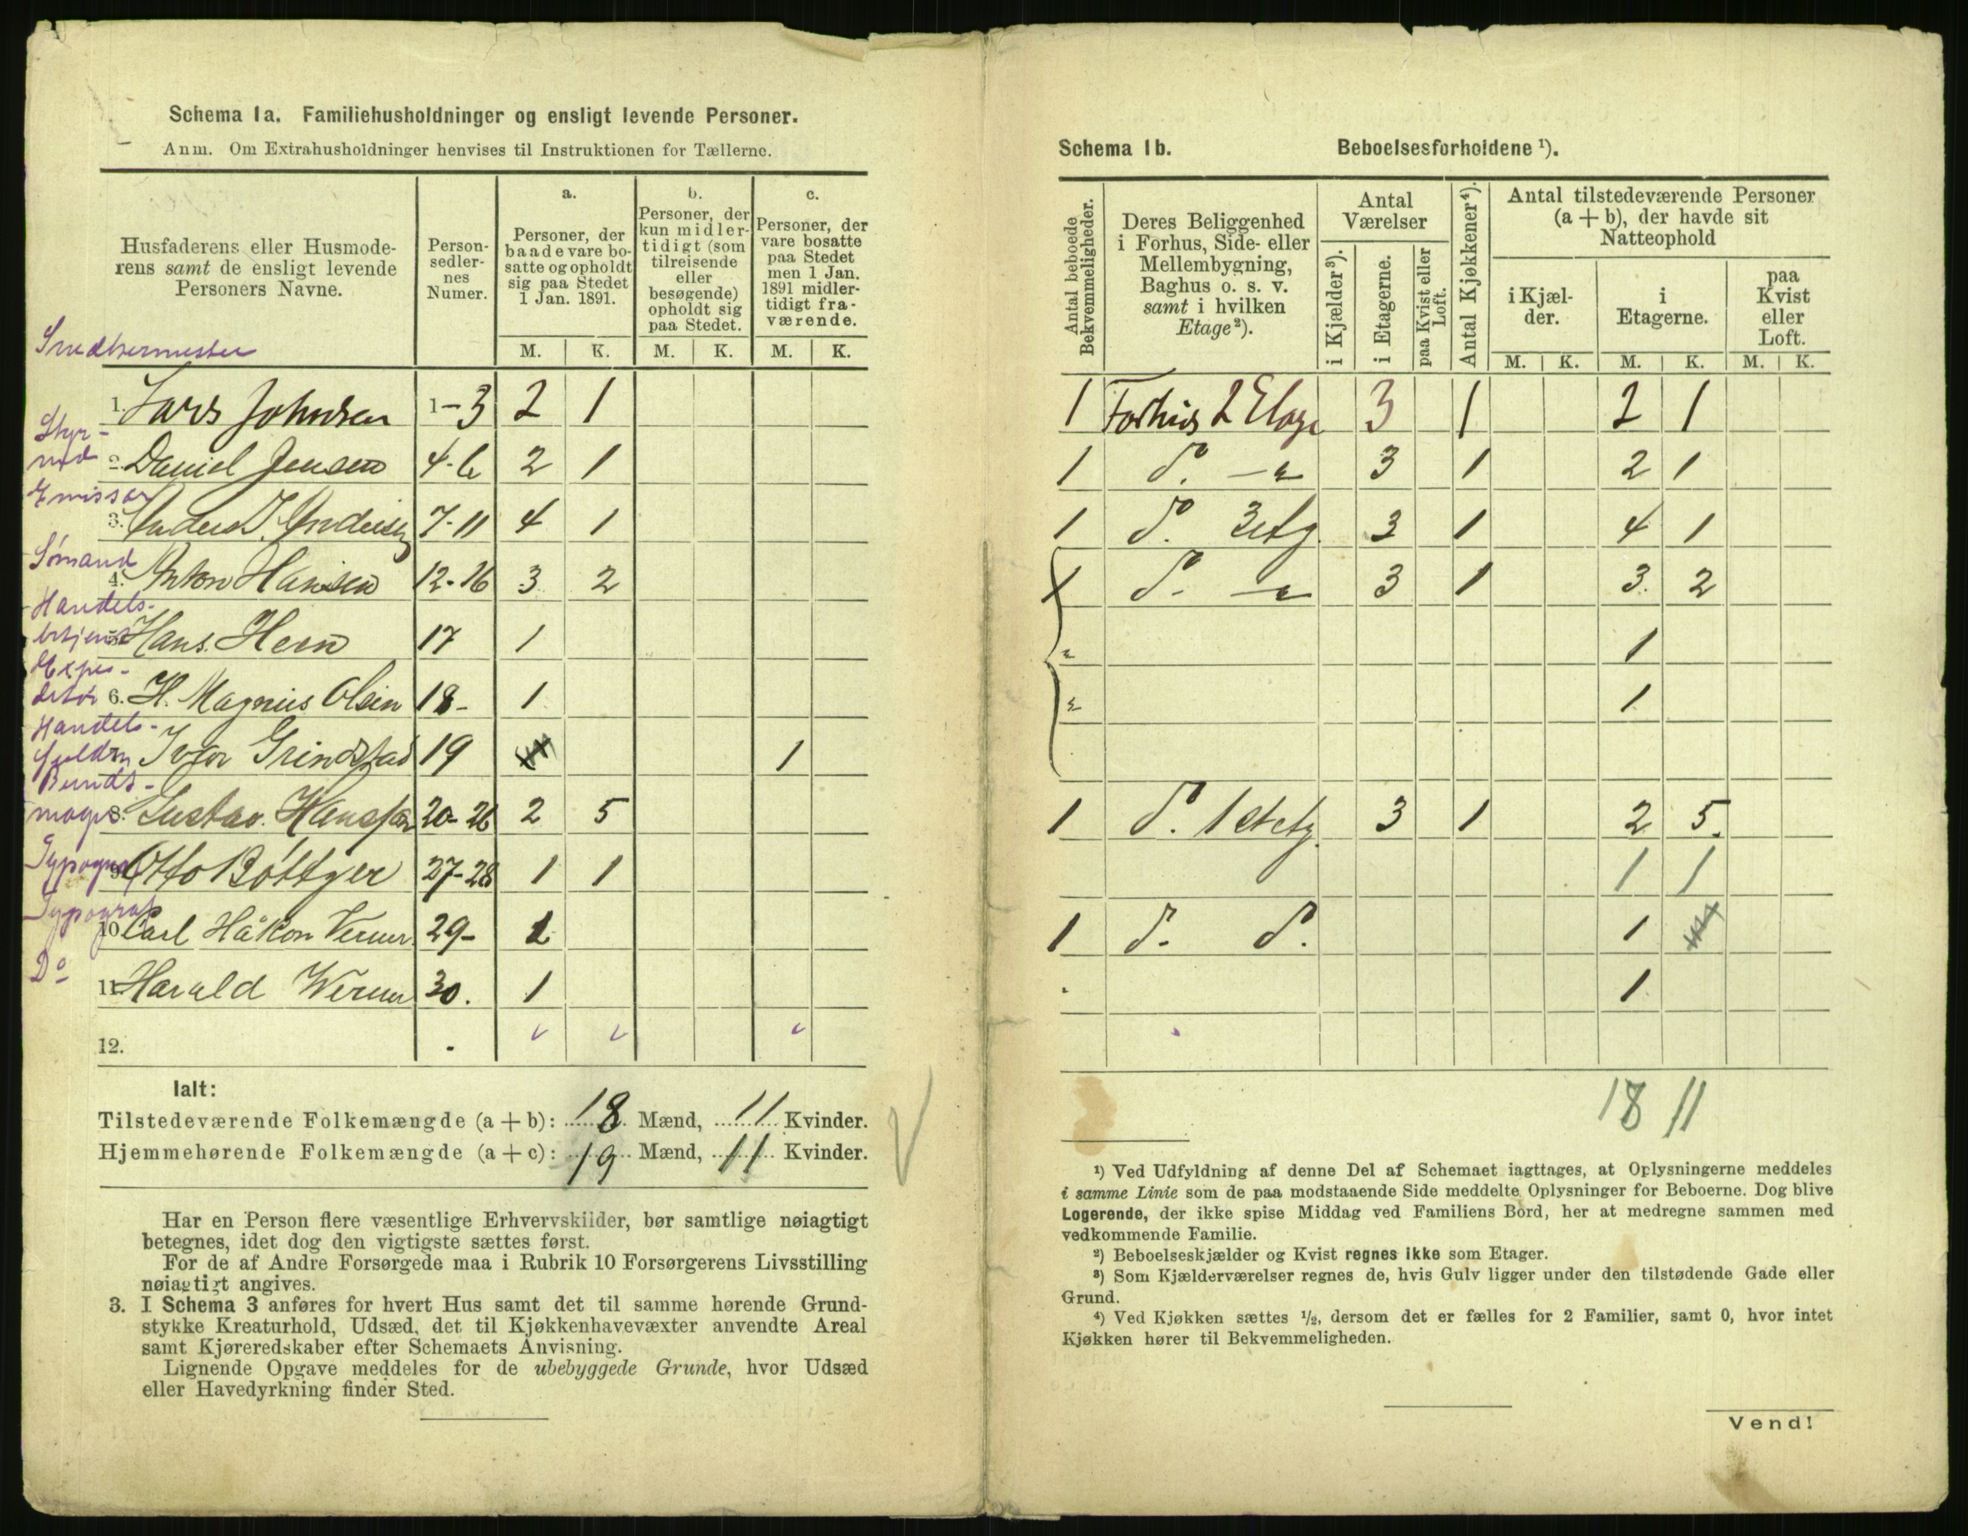 Schema 1a. Familiehusholdninger og ensligt levende Personer.
Anm. Om Extrahusholdninger henvises til Instruktionen for Tællerne.
Husfaderens eller Husmoderens samt de ensligt levende Personers Navne.
Personsedlernes Numer.
a. Personer, der baade vare bosatte og opholdt sig paa Stedet 1 Jan. 1891.
b. Personer, der kun midlertidigt (som tilreisende eller besøgende) opholdt sig paa Stedet.
c. Personer, der vare bosatte paa Stedet men 1 Jan. 1891 midlertidigt fraværende.
M. K. M. K. M. K.
Smedhermester
1. Lars Johnsen 1-3 2 1
Styrmd
2. Daniel Jensen 4-6 2 1
Emissær
3. Anders J. Andersen 7-11 4 1
Sømand
4. Anton Hansen 12-16 3 2
Handelsbetjent
Hans Hern 17 1
Expeditør
6. H. Magnus Olsen 18- 1
Handels-
Ivar Grindstad 19 1
Bundtmager
8. Gustav Hansen 20-26 2 5
Typograf
9. Otto Bøttger 27-28 1 1
Typograf
10. Carl Håkon Verner 29- 1
Do
11. Harald Werner 30. 1
12.
Ialt:
Tilstedeværende Folkemængde (a + b): 18 Mænd, 11 Kvinder.
Hjemmehørende Folkemængde (a + c): 19 Mænd, 11 Kvinder.
Har en Person flere væsentlige Erhvervskilder, bør samtlige nøiagtigt
betegnes, idet dog den vigtigste sættes først.
For de af Andre Forsørgede maa i Rubrik 10 Forsørgerens Livsstilling
nøiagtigt angives.
3. I Schema 3 anføres for hvert Hus samt det til samme hørende Grund-
stykke Kreaturhold, Udsæd, det til Kjøkkenhavevæxter anvendte Areal
samt Kjøreredskaber efter Schemaets Anvisning.
Lignende Opgave meddeles for de ubebyggede Grunde, hvor Udsæd
eller Havedyrkning finder Sted.
Schema 1b. Beboelsesforholdene ¹).
Antal beboede Bekvemmeligheder.
Deres Beliggenhed i Forhus, Side- eller Mellembygning, Baghus o. s. v. samt i hvilken Etage²).
Antal Værelser
i Kjælder³). i Etagerne. paa Kvist eller Loft.
Antal Kjøkkener⁴).
Antal tilstedeværende Personer (a + b), der havde sit Natteophold
i Kjælder. i Etagerne. paa Kvist eller Loft.
M. K. M. K. M. K.
1 Forhus 2 Etage 3 1 2 1
1 do. -"- 3 1 2 1
1 do. 3 etg. 3 1 4 1
1 do. -"- 3 1 3 2
" 1
" 1
1 do. 1ste etg. 3 1 2 5.
1 1
1 do. do. 1
1
18 11
¹) Ved Udfyldning af denne Del af Schemaet iagttages, at Oplysningerne meddeles
i samme Linie som de paa modstaaende Side meddelte Oplysninger for Beboerne. Dog blive
Logerende, der ikke spise Middag ved Familiens Bord, her at medregne sammen med
vedkommende Familie.
²) Beboelseskjælder og Kvist regnes ikke som Etager.
³) Som Kjælderværelser regnes de, hvis Gulv ligger under den tilstødende Gade eller
Grund.
⁴) Ved Kjøkken sættes ½, dersom det er fælles for 2 Familier, samt 0, hvor intet
Kjøkken hører til Bekvemmeligheden.
Vend!